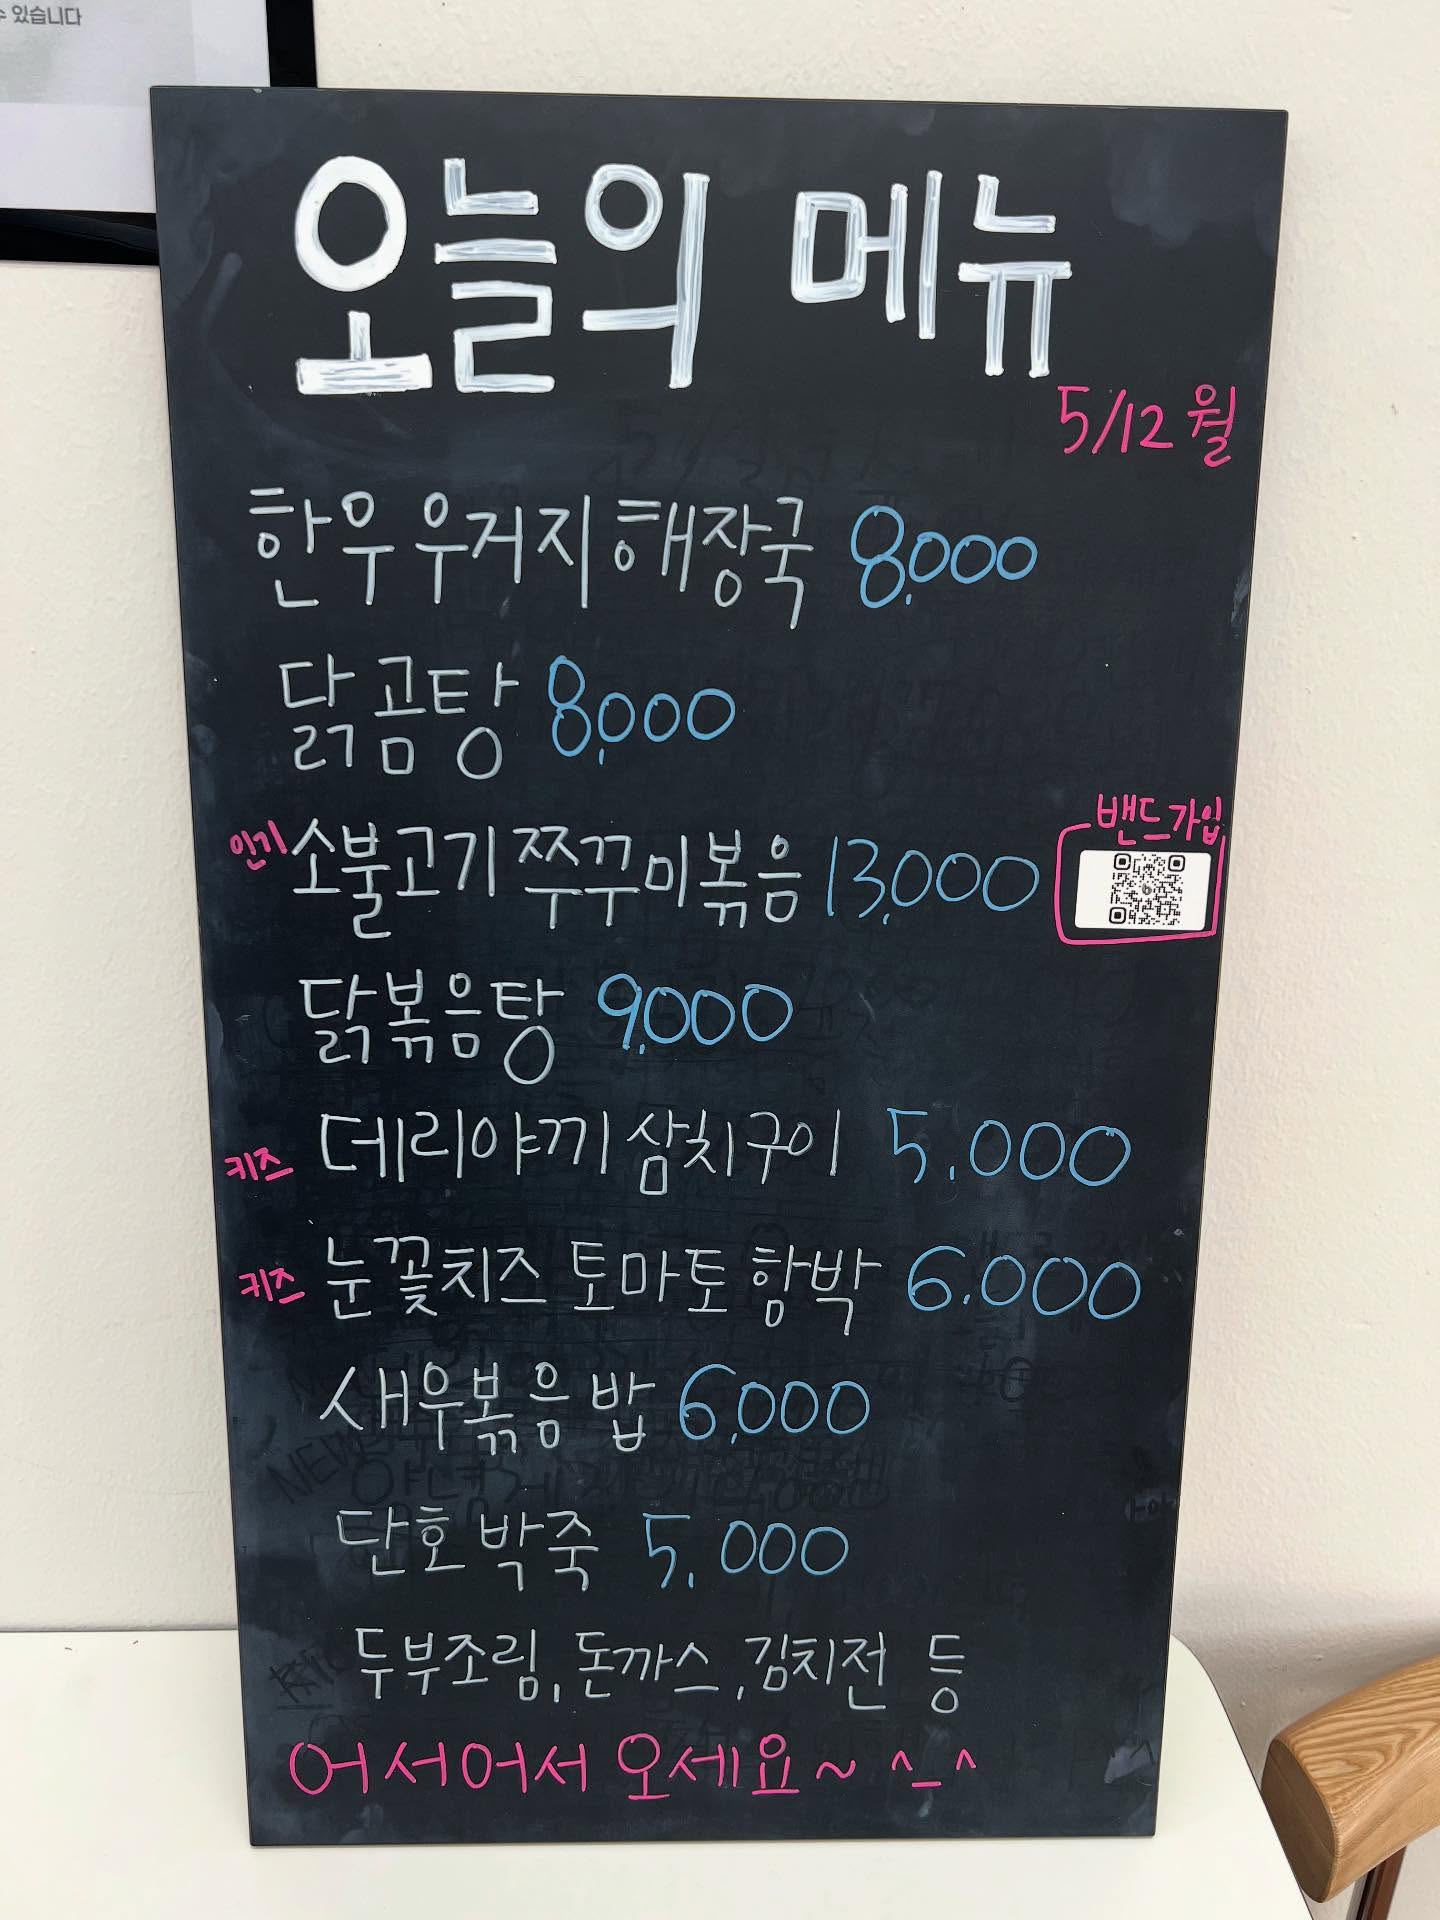 있습니다
오늘의 메뉴
5/12 월
한우 우거지 해장국 8,000
닭곰탕 8,000
밴드가입
인기 소불고기 쭈꾸미볶음 13,000
닭볶음탕 9,000
키즈 데리야끼 삼치구이 5,000
키즈 눈꽃치즈 토마토 함박 6,000
새우볶음밥 6,000
단호박죽 5,000
두부조림, 돈까스, 김치전 등
어서어서 오세요~ ^_^